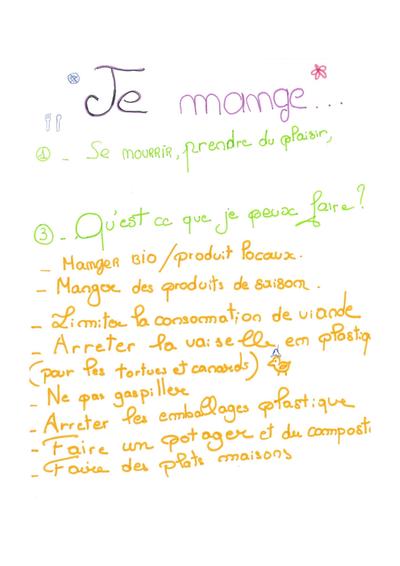 Je mange...
① - Se NOURRIR, prendre du plaisir,
③ - Qu'est ce que je peux faire?
- Manger BIO / produit locaux.
- Manger des produits de saison.
- Limiter la consormation de viande
- Arreter la vaiselle en plastiq
(pour les tortues et canards)
- Ne pas gaspiller
- Arreter les emballages plastique
- Faire un potager et du composti
- Faire des plats maisons